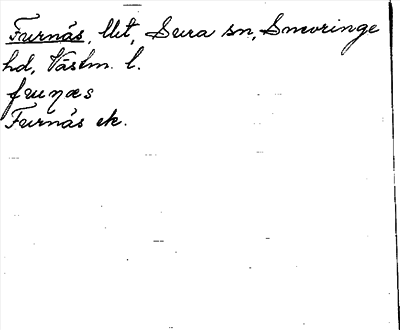 Furnäs, Utt, Sura sn, Snevringe
hd, Västm. l.
fɯɳæs
Furnäs ek.